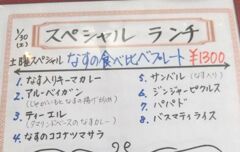 1/30
(土)
スペシャル ランチ
土曜スペシャル なすの食べ比べプレート ¥1300
1. なす入りキーマカレー
2. アル・ベイガン
(じゃがいもとなすの揚げ炒め)
3. ティーエル
(タマリンドベースのなすカレー)
4. なすのココナツマサラ
5. サンバル (なす入り)
6. ジンジャーピクルス
7. パパド
8. バスマティライス